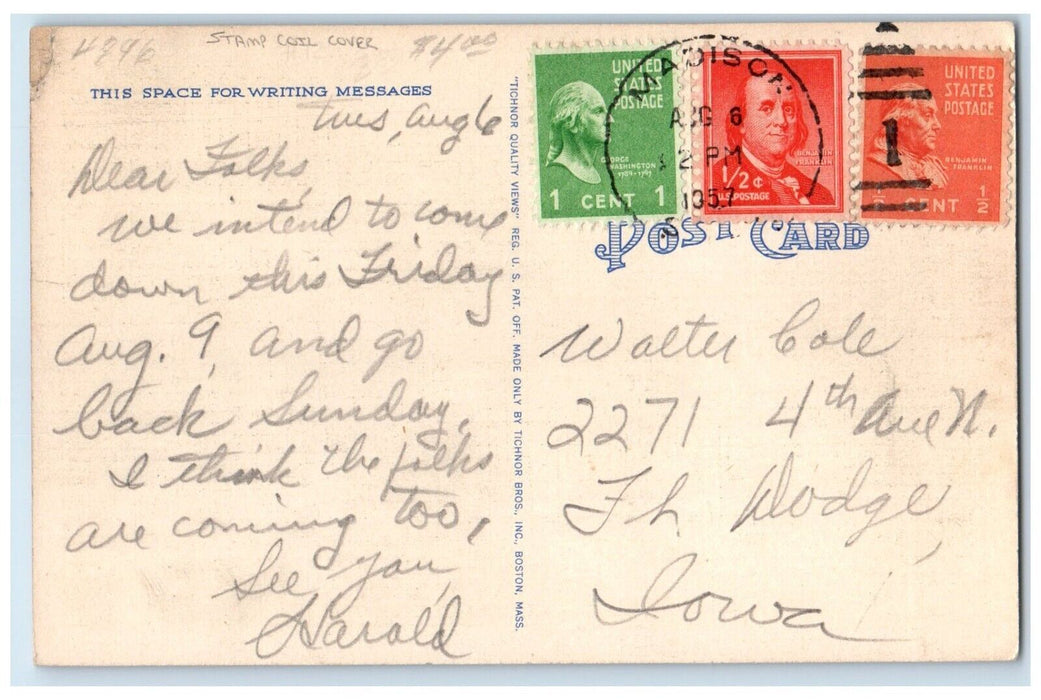 4796 STAMP COIL COVER $4.00
THIS SPACE FOR WRITING MESSAGES
Tues, Aug 6
Dear Folks,
We intend to come
down this Friday
Aug. 9, and go
back Sunday.
I think the folks
are coming too,
See you,
Harold
"TICHNOR QUALITY VIEWS" REG. U. S. PAT. OFF. MADE ONLY BY TICHNOR BROS., INC., BOSTON, MASS.
UNITED
STATES
POSTAGE
GEORGE
WASHINGTON
1789-1797
1 CENT 1
BENJAMIN
FRANKLIN
1/2 ¢
U.S. POSTAGE
UNITED
STATES
POSTAGE
BENJAMIN
FRANKLIN
CENT 1/2
MADISON
AUG 6
2 PM
1957
1
POST CARD
Walter Cole
2271 4th Ave N.
Ft. Dodge,
Iowa